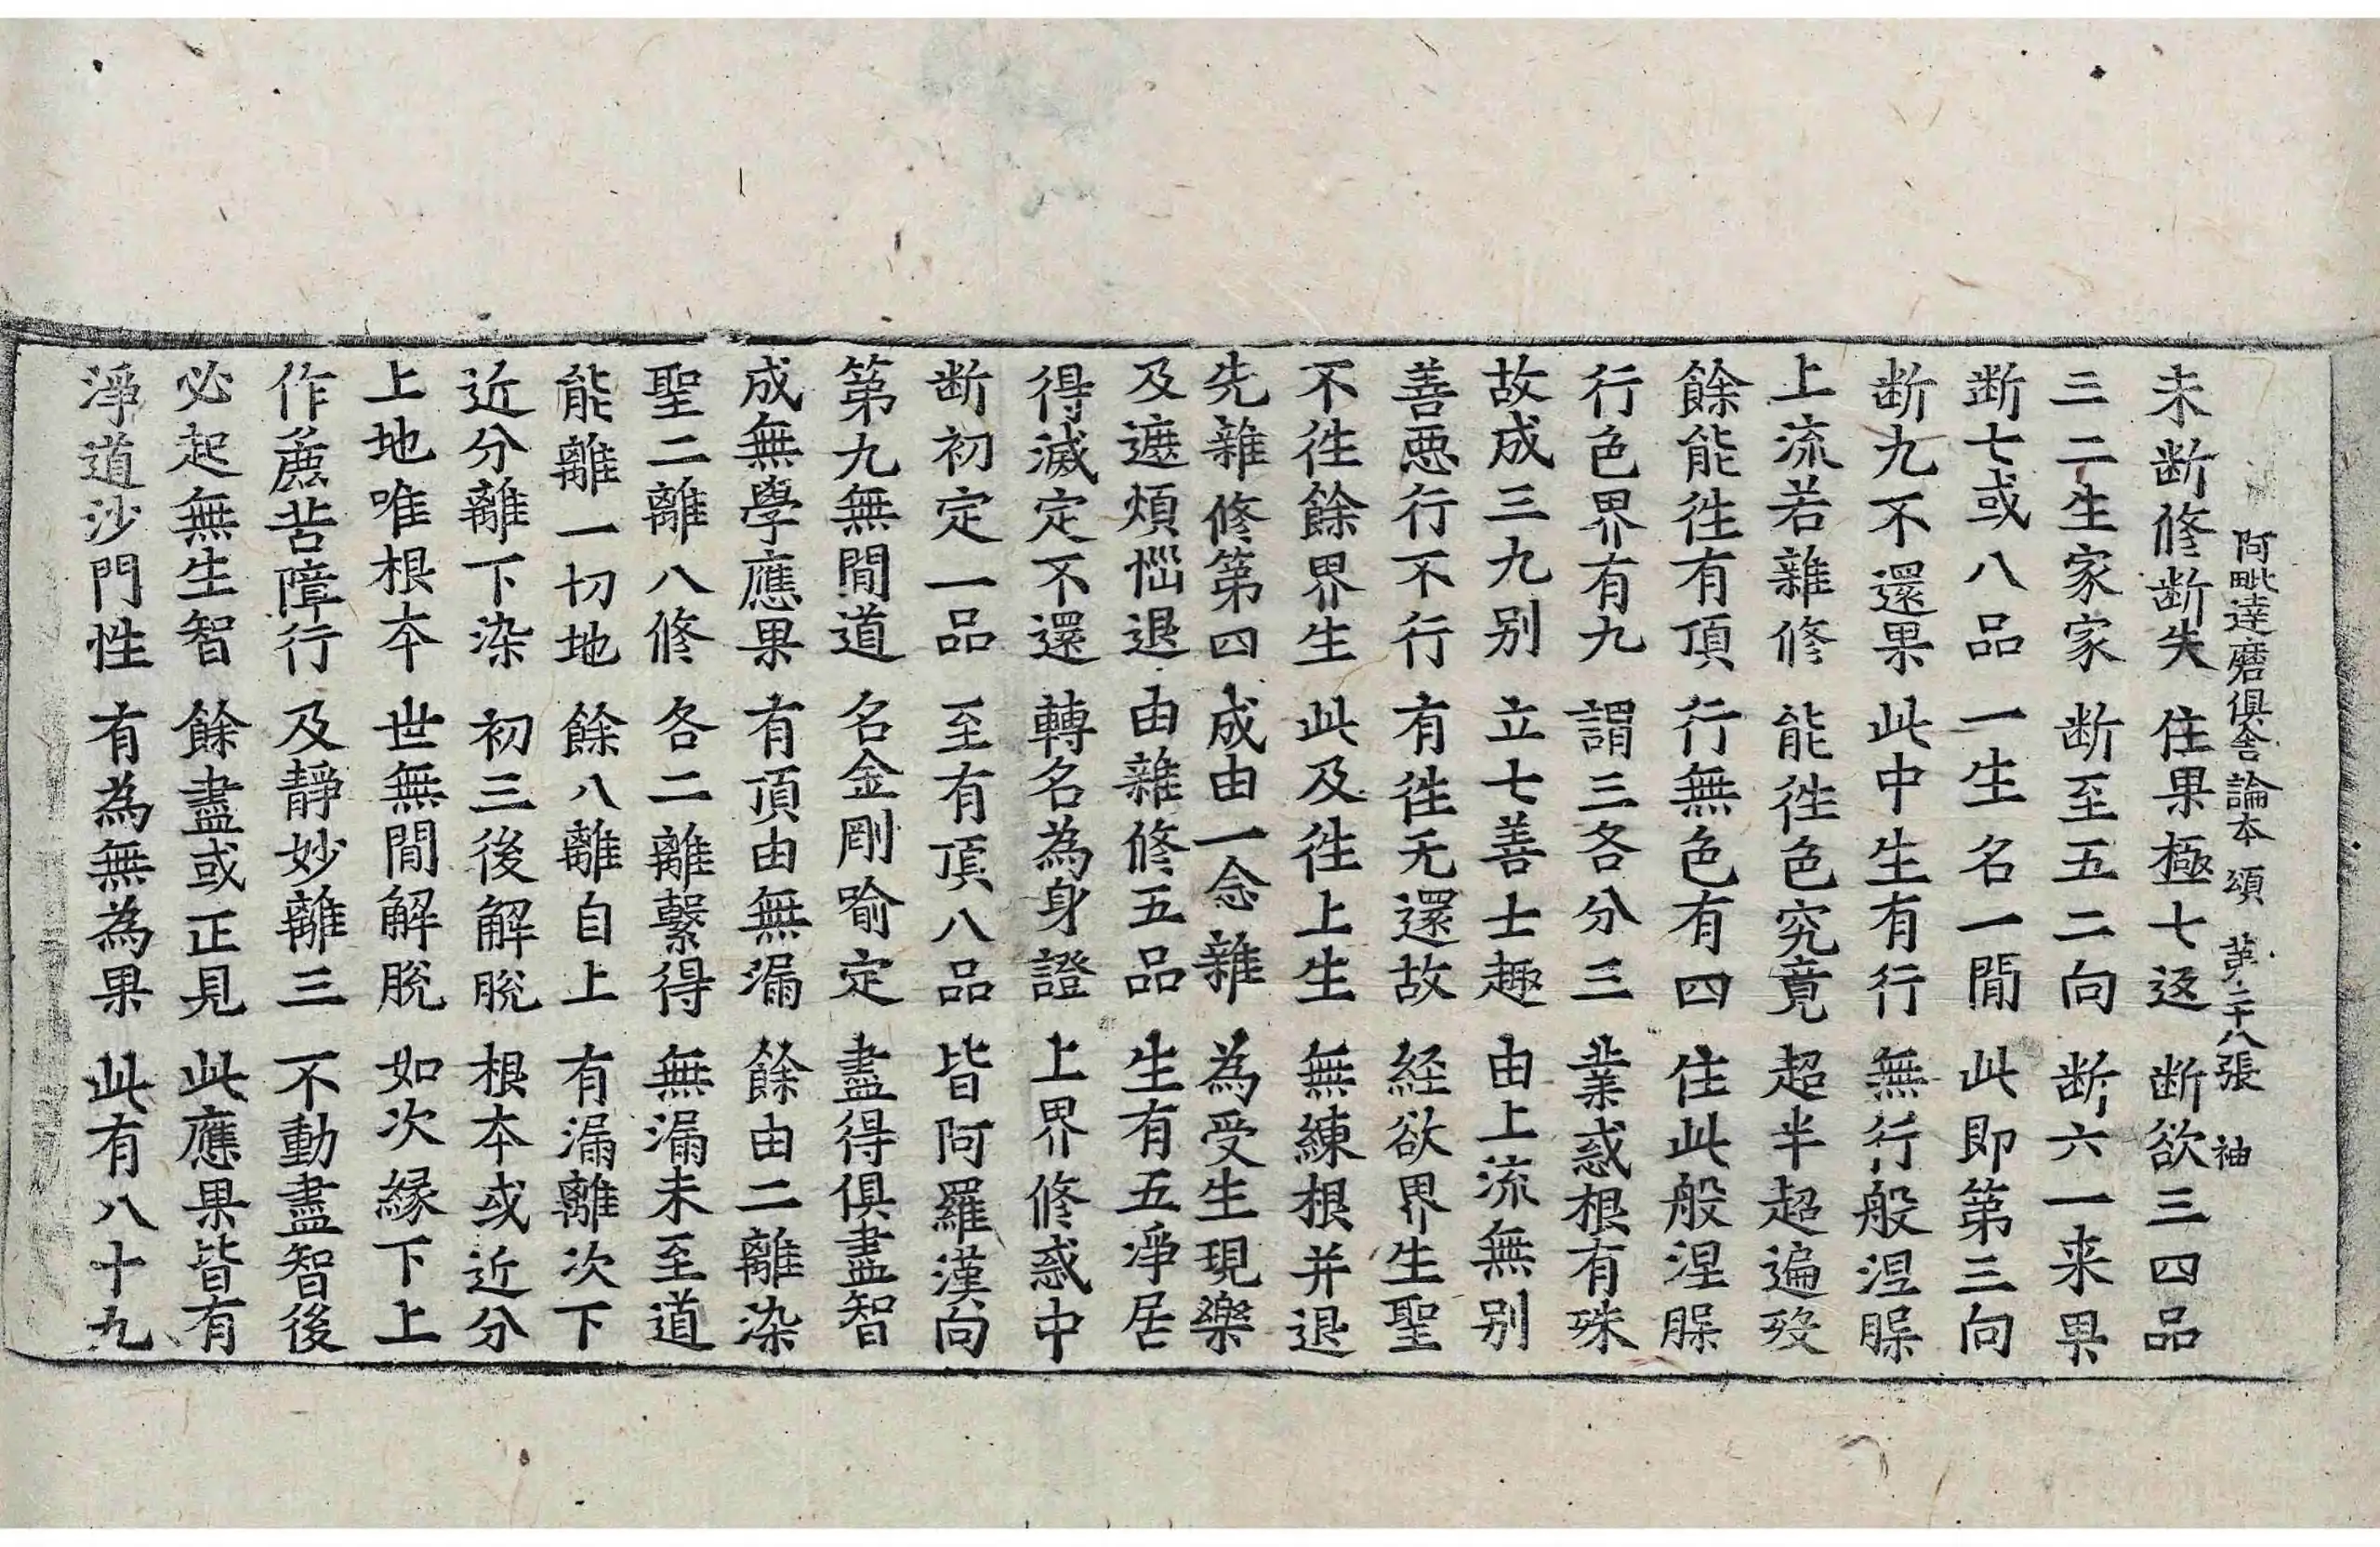 阿毗達磨俱舍論本頌 第二十八張 袖
未断修断失 住果極七返 断欲三四品
三二生家家 断至五二向 断六一来果
断七或八品 一生名一閒 此即第三向
断九不還果 此中生有行 無行般涅㬱
上流若雜修 能徃色究竟 超半超遍歿
餘能徃有頂 行無色有四 住此般涅㬱
行色界有九 謂三各分三 業惑根有殊
故成三九别 立七善士趣 由上流無别
善恶行不行 有徃无還故 経欲界生聖
不徃餘界生 此及徃上生 無練根并退
先雜修第四 成由一念雜 為受生現樂
及遮煩惱退 由雜修五品 生有五淨居
得滅定不還 轉名為身證 上界修惑中
断初定一品 至有頂八品 皆阿羅漢向
第九無閒道 名金剛喻定 盡得俱盡智
成無學應果 有頂由無漏 餘由二離染
聖二離八修 各二離繫得 無漏未至道
能離一切地 餘八離自上 有漏離次下
近分離下染 初三後解脫 根本或近分
上地唯根本 世無閒解脫 如次縁下上
作麁苦障行 及靜妙離三 不動盡智後
必起無生智 餘盡或正見 此應果皆有
淨道沙門性 有為無為果 此有八十九